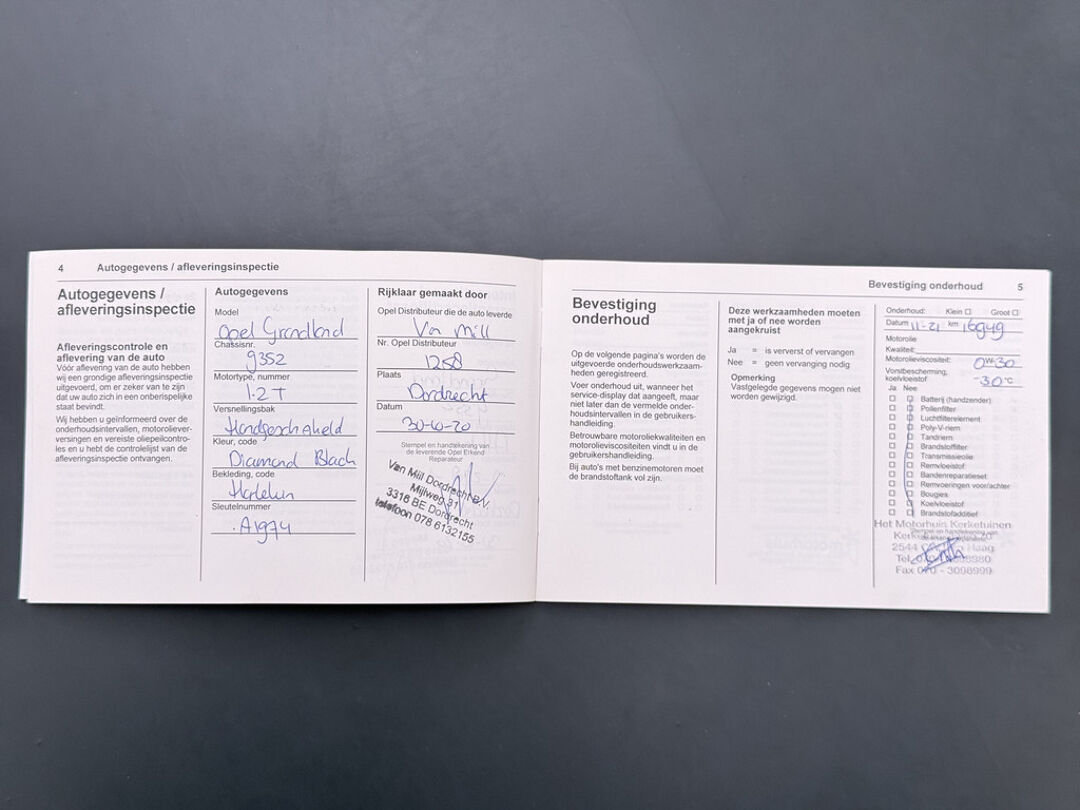 4 Autogegevens / afleveringsinspectie
Autogegevens /
afleveringsinspectie
Afleveringscontrole en
aflevering van de auto
Vóór aflevering van de auto hebben
wij een grondige afleveringsinspectie
uitgevoerd, om er zeker van te zijn
dat uw auto zich in een onberispelijke
staat bevindt.
Wij hebben u geïnformeerd over de
onderhoudsintervallen, motoroliever-
versingen en vereiste oliepeilcontro-
les en u hebt de controlelijst van de
afleveringsinspectie ontvangen.
Autogegevens
Model
Opel Grandland
Chassisnr.
9352
Motortype, nummer
1.2T
Versnellingsbak
Handgeschakeld
Kleur, code
Diamond Black
Bekleding, code
Sleutelnummer
A1974
Rijklaar gemaakt door
Opel Distributeur die de auto leverde
Van Mill
Nr. Opel Distributeur
1258
Plaats
Dordrecht
Datum
30-10-20
Stempel en handtekening van
de leverende Opel Erkend
Reparateur
Van Mill Dordrecht B.V.
Mijlweg 31
3316 BE Dordrecht
telefoon 078 6132155
Bevestiging onderhoud 5
Bevestiging
onderhoud
Op de volgende pagina's worden de
uitgevoerde onderhoudswerkzaam-
heden geregistreerd.
Voer onderhoud uit, wanneer het
service-display dat aangeeft, maar
niet later dan de vermelde onder-
houdsintervallen in de gebruikers-
handleiding.
Betrouwbare motoroliekwaliteiten en
motorolieviscositeiten vindt u in de
gebruikershandleiding.
Bij auto's met benzinemotoren moet
de brandstoftank vol zijn.
Deze werkzaamheden moeten
met ja of nee worden
aangekruist
Ja = is ververst of vervangen
Nee = geen vervanging nodig
Opmerking
Vastgelegde gegevens mogen niet
worden gewijzigd.
Onderhoud: Klein Groot
Datum 11-21 km 16949
Motorolie
Kwaliteit:
Motorolieviscositeit: 0W-30
Vorstbescherming,
koelvloeistof -30 °C
Ja Nee
Batterij (handzender)
Pollenfilter
Luchtfilterelement
Poly-V-riem
Tandriem
Brandstoffilter
Transmissieolie
Remvloeistof
Bandenreparatieset
Remvoeringen voor/achter
Bougies
Koelvloeistof
Brandstofadditief
Het Motorhuis Kerketuinen
Stempel en handtekening van
2544 Haag
Fax 070 - 3098999